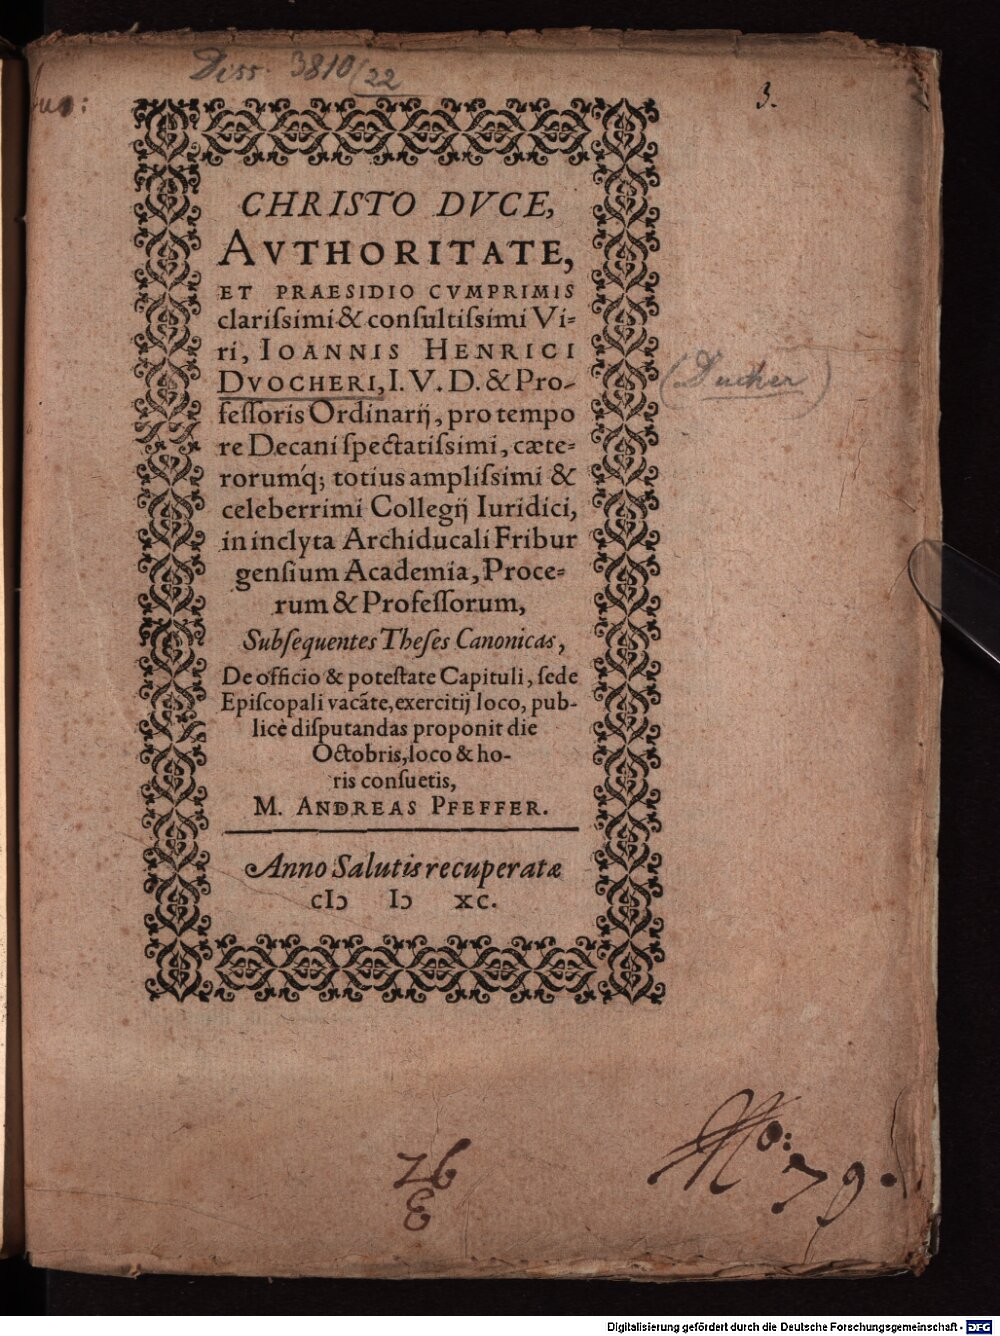 Diss. 3810/22
3.
CHRISTO DVCE,
AVTHORITATE,
ET PRAESIDIO CVMPRIMIS
clariſsimi & conſultiſsimi Vi=
ri, IOANNIS HENRICI
DVOCHERI, I. V. D. & Pro-
feſſoris Ordinarij, pro tempo
re Decani ſpectatiſsimi, cæte-
rorumq́; totius ampliſsimi &
celeberrimi Collegij Iuridici,
in inclyta Archiducali Fribur
genſium Academia, Proce=
rum & Profeſſorum,
Subſequentes Theſes Canonicas,
De officio & poteſtate Capituli, ſede
Epiſcopali vacãte, exercitij loco, pub-
licè diſputandas proponit die
Octobris, loco & ho-
ris conſuetis,
M. ANDREAS PFEFFER.
(Ducher)
Anno Salutis recuperatæ
cIɔ Iɔ XC.
26
No: 79.
Digitalisierung gefördert durch die Deutsche Forschungsgemeinschaft - DFG